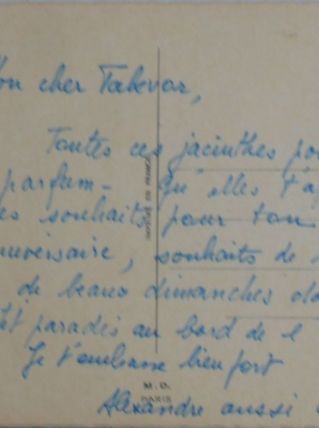 on cher Takvor,
Toutes ces jacinthes po
parfum - Qu'elles t'ap
es souhaits pour ton
nniversaire, souhaits de
de beaux dimanches
it paradis au bord de l
Je t'embrasse bien fort
M. D.
PARIS
Alexandre aussi